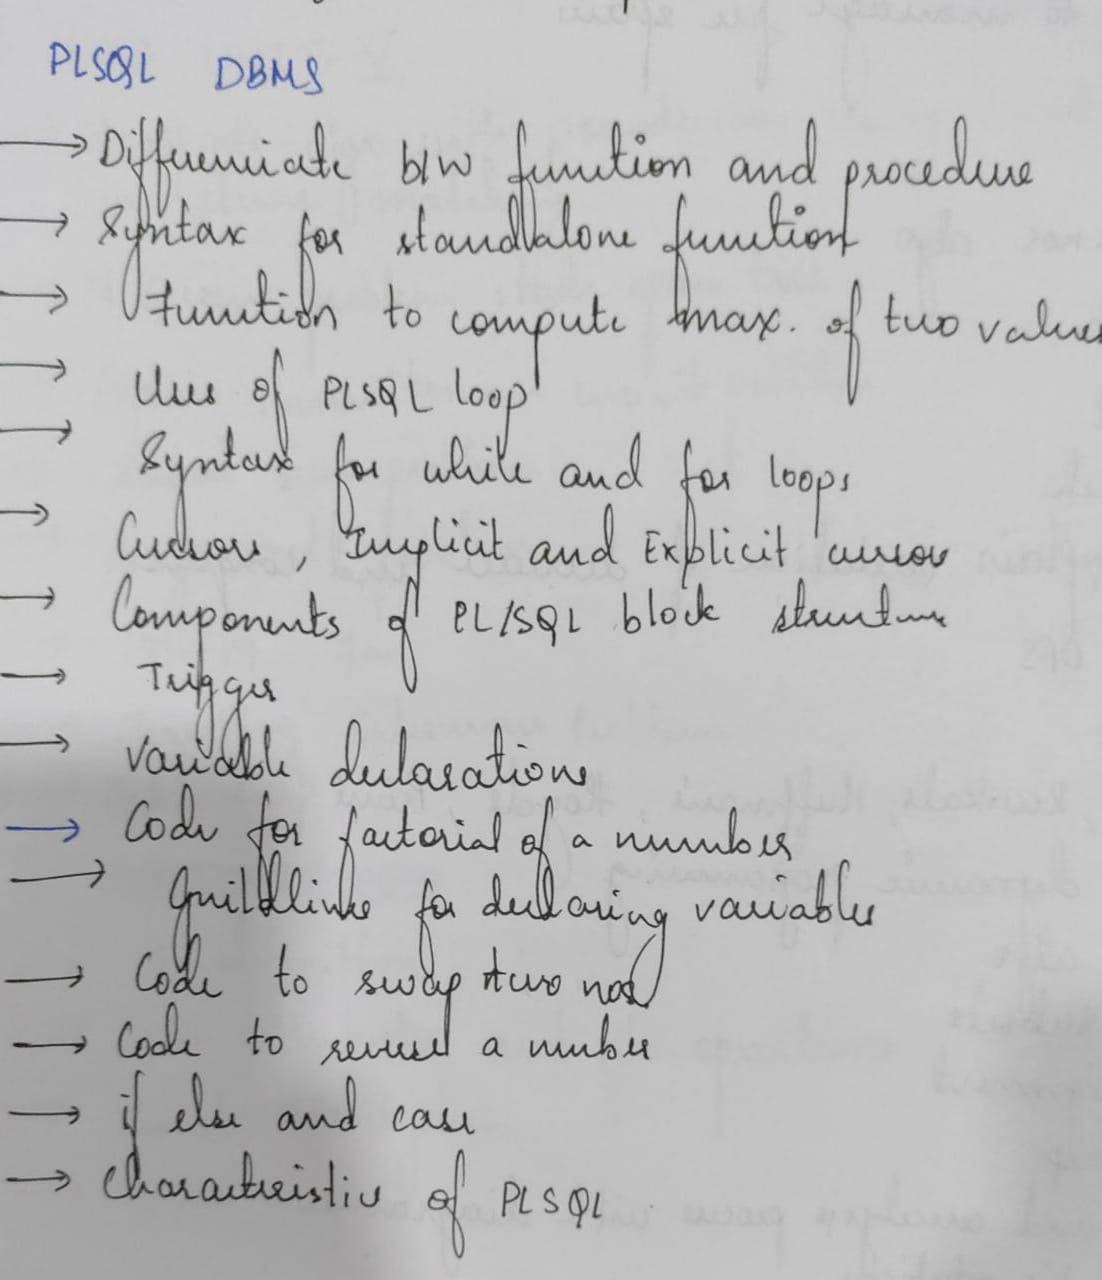 PLSQL DBMS
→ Differenciate b/w function and procedure
→ Syntax for standalone function
→ Function to compute max. of two values
→ Uses of PLSQL loop
→ Syntax for while and for loops
→ Cursors, Implicit and Explicit cursor
→ Components of PL/SQL block structure
→ Trigger
→ Variable declarations
→ Code for factorial of a number
→ Guildlines for declaring variables
→ Code to swap two nos
→ Code to reverse a number
→ if else and case
→ Characteristics of PLSQL